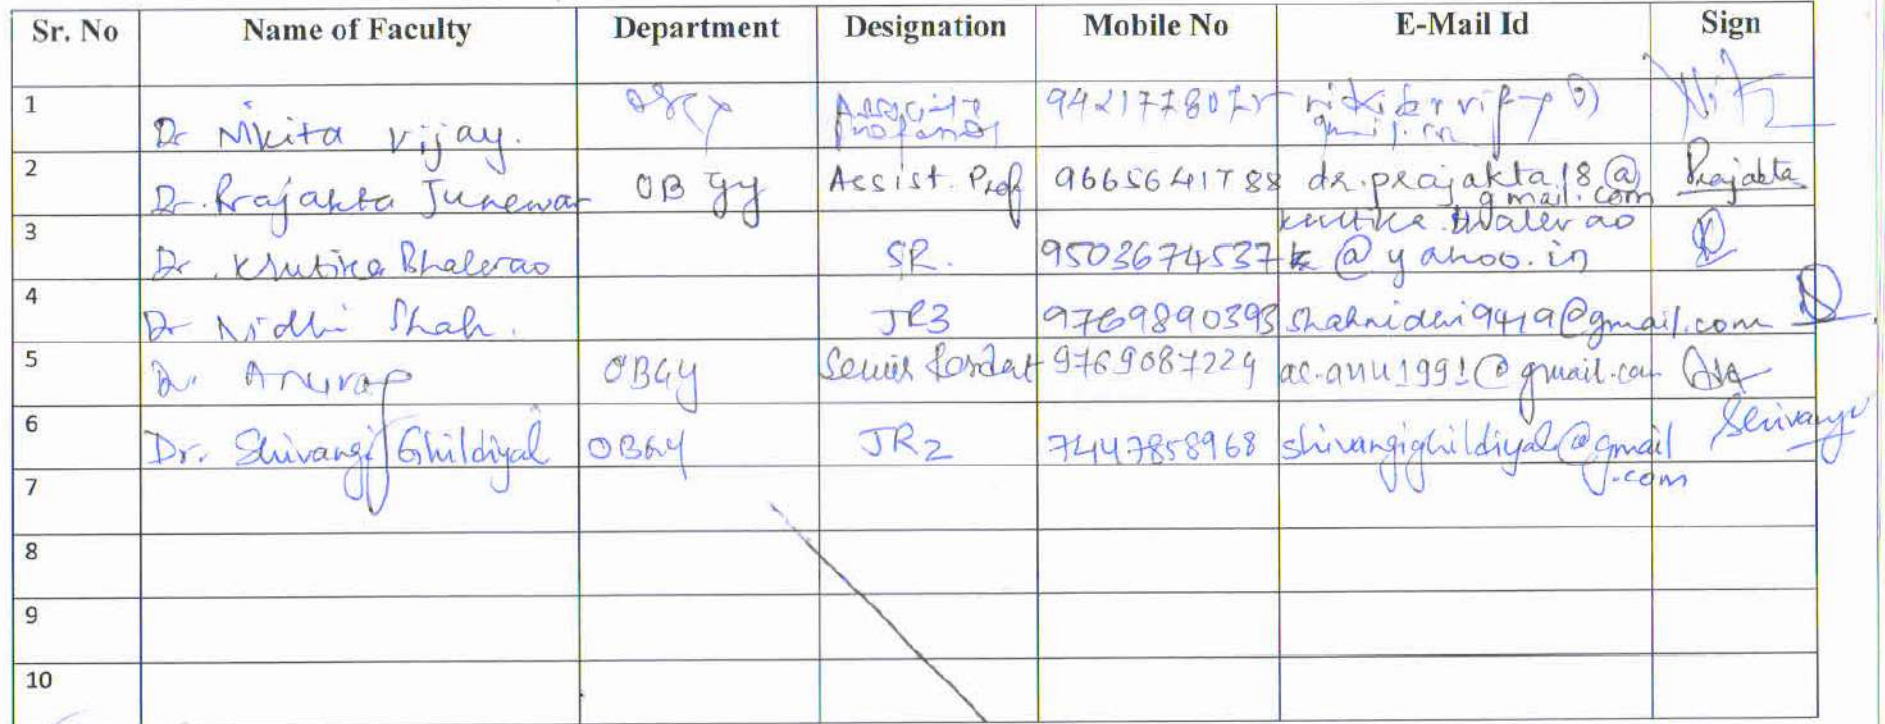 Sr. No Name of Faculty Department Designation Mobile No E-Mail Id Sign
1 Dr Nikita Vijay. Associate Professor
2 Dr. Prajakta Junewar OB gy Assist. Prof 9665641788 dr.prajakta18@gmail.com Prajakta
3 Dr. Krutika Bhalerao SR. 9503674537 krutika.bhalerao
@yahoo.in
4 Dr Nidhi Shah. JR3 9769890393 shahnidhi9419@gmail.com
5 Dr. Anurag OBGY 9769087229 ac.anu1991@gmail.com
6 Dr. Shivangi Ghildiyal OBGY JR2 7447858968 shivangighildiyal@gmail
.com Shivangi
7
8
9
10